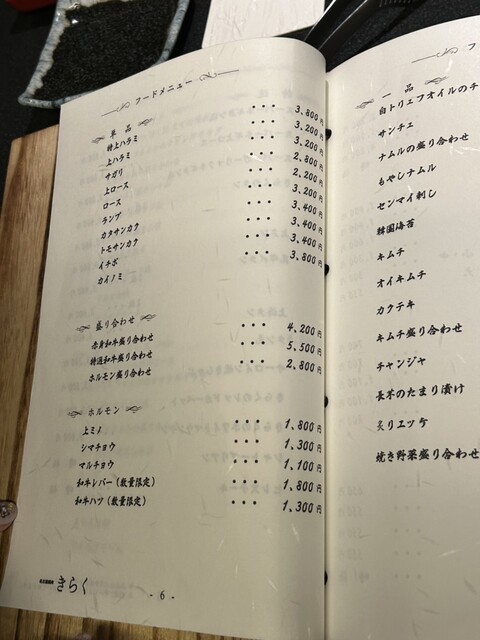 フードメニュー
単品
特上ハラミ ・・・ 3,800円
上ハラミ ・・・ 3,200円
サガリ ・・・ 3,200円
上ロース ・・・ 2,800円
ロース ・・・ 2,200円
ランプ ・・・ 3,200円
カタサンカク ・・・ 3,400円
トモサンカク ・・・ 3,400円
イチボ ・・・ 3,400円
カイノミ ・・・ 3,800円
盛り合わせ
赤身和牛盛り合わせ ・・・ 4,200円
特選和牛盛り合わせ ・・・ 5,500円
ホルモン盛り合わせ ・・・ 2,800円
ホルモン
上ミノ ・・・ 1,800円
シマチョウ ・・・ 1,300円
マルチョウ ・・・ 1,100円
和牛レバー（数量限定） ・・・ 1,800円
和牛ハツ（数量限定） ・・・ 1,300円
きらく
- 6 -
フ
一品
白トリュフオイルのチ
サンチェ
ナムルの盛り合わせ
もやしナムル
センマイ刺し
韓国海苔
キムチ
オイキムチ
カクテキ
キムチ盛り合わせ
チャンジャ
長芋のたまり漬け
炙りエッケ
焼き野菜盛り合わせ